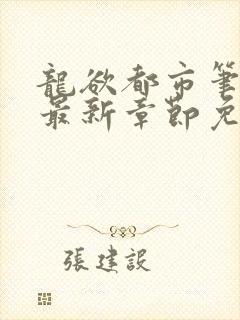 龍欲都市筆
最新章節免
張建設